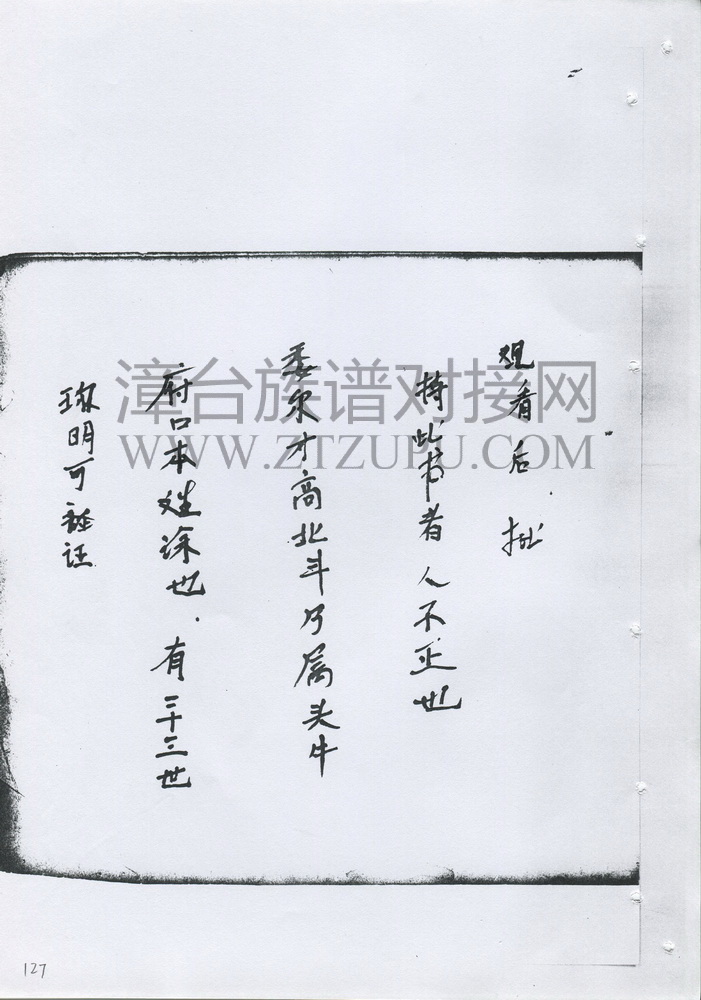 观看后.批
持此书者人不正也
委尔才高北斗乃属头牛
府口本姓涂也.有三十三世
琼明可証
漳台族谱对接网
WWW.ZTZUPU.COM
127